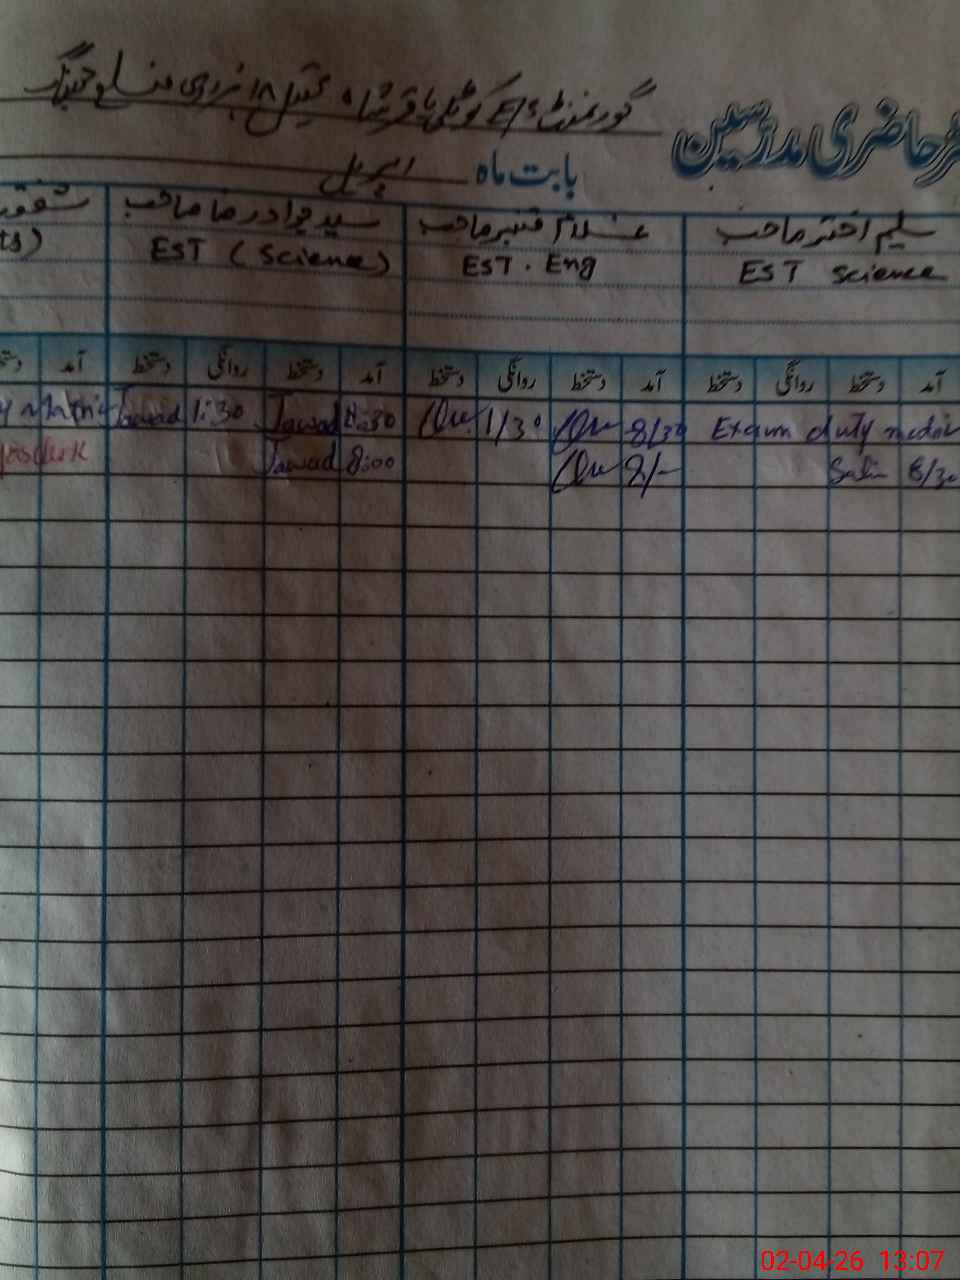 گورنمنٹ E/S کوٹلی باقر شاہ تحصیل ۱۸ ہزاری ضلع جھنگ
حاضری مدرسین
بابت ماہ اپریل
سلیم اختر صاحب
EST Science
غلام قنبر صاحب
EST. Eng
سید جواد رضا صاحب
EST (Science)
آمد دستخط روانگی دستخط آمد دستخط روانگی دستخط آمد دستخط روانگی دستخط آمد
Jawad 1:30 Jawad 8:30 1/30 8/30 Exam duty
Jawad 8:00 8/- 8/30
02-04-26 13:07